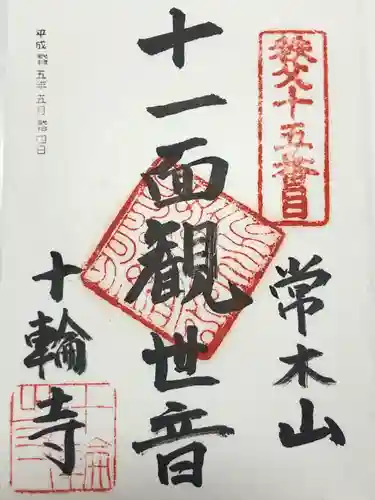 秩父十五番目
常木山
十一面観世音
十輪寺
五年五月拾四日
平成